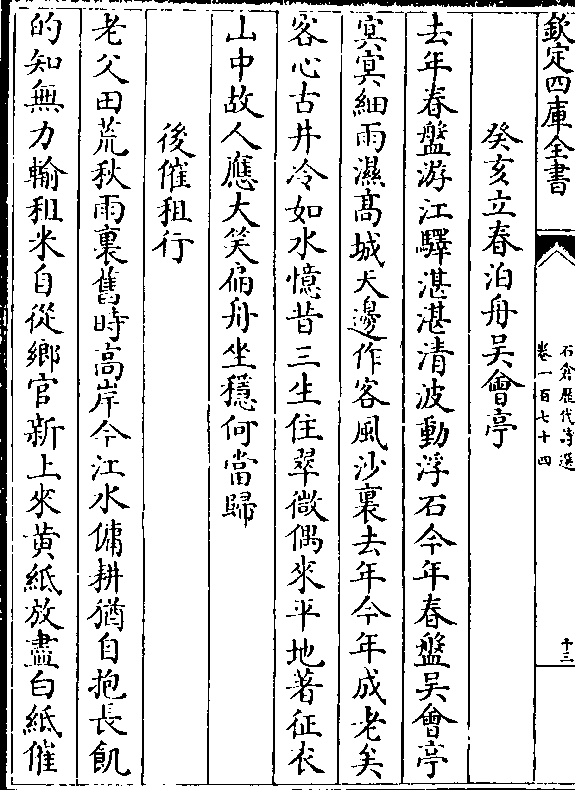 欽定四庫全書
石倉歷代詩選
卷一百七十四
十三
癸亥立春泊舟吳會亭
去年春盤游江驛湛湛清波動浮石今年春盤吳會亭
冥冥細雨濕髙城天邊作客風沙裏去年今年成老矣
客心古井冷如水憶昔三生住翠微偶來平地著征衣
山中故人應大笑扁舟坐穩何當歸
後催租行
老父田荒秋雨裏舊時高岸今江水傭耕猶自抱長飢
的知無力輸租米自從鄉官新上來黄紙放盡白紙催